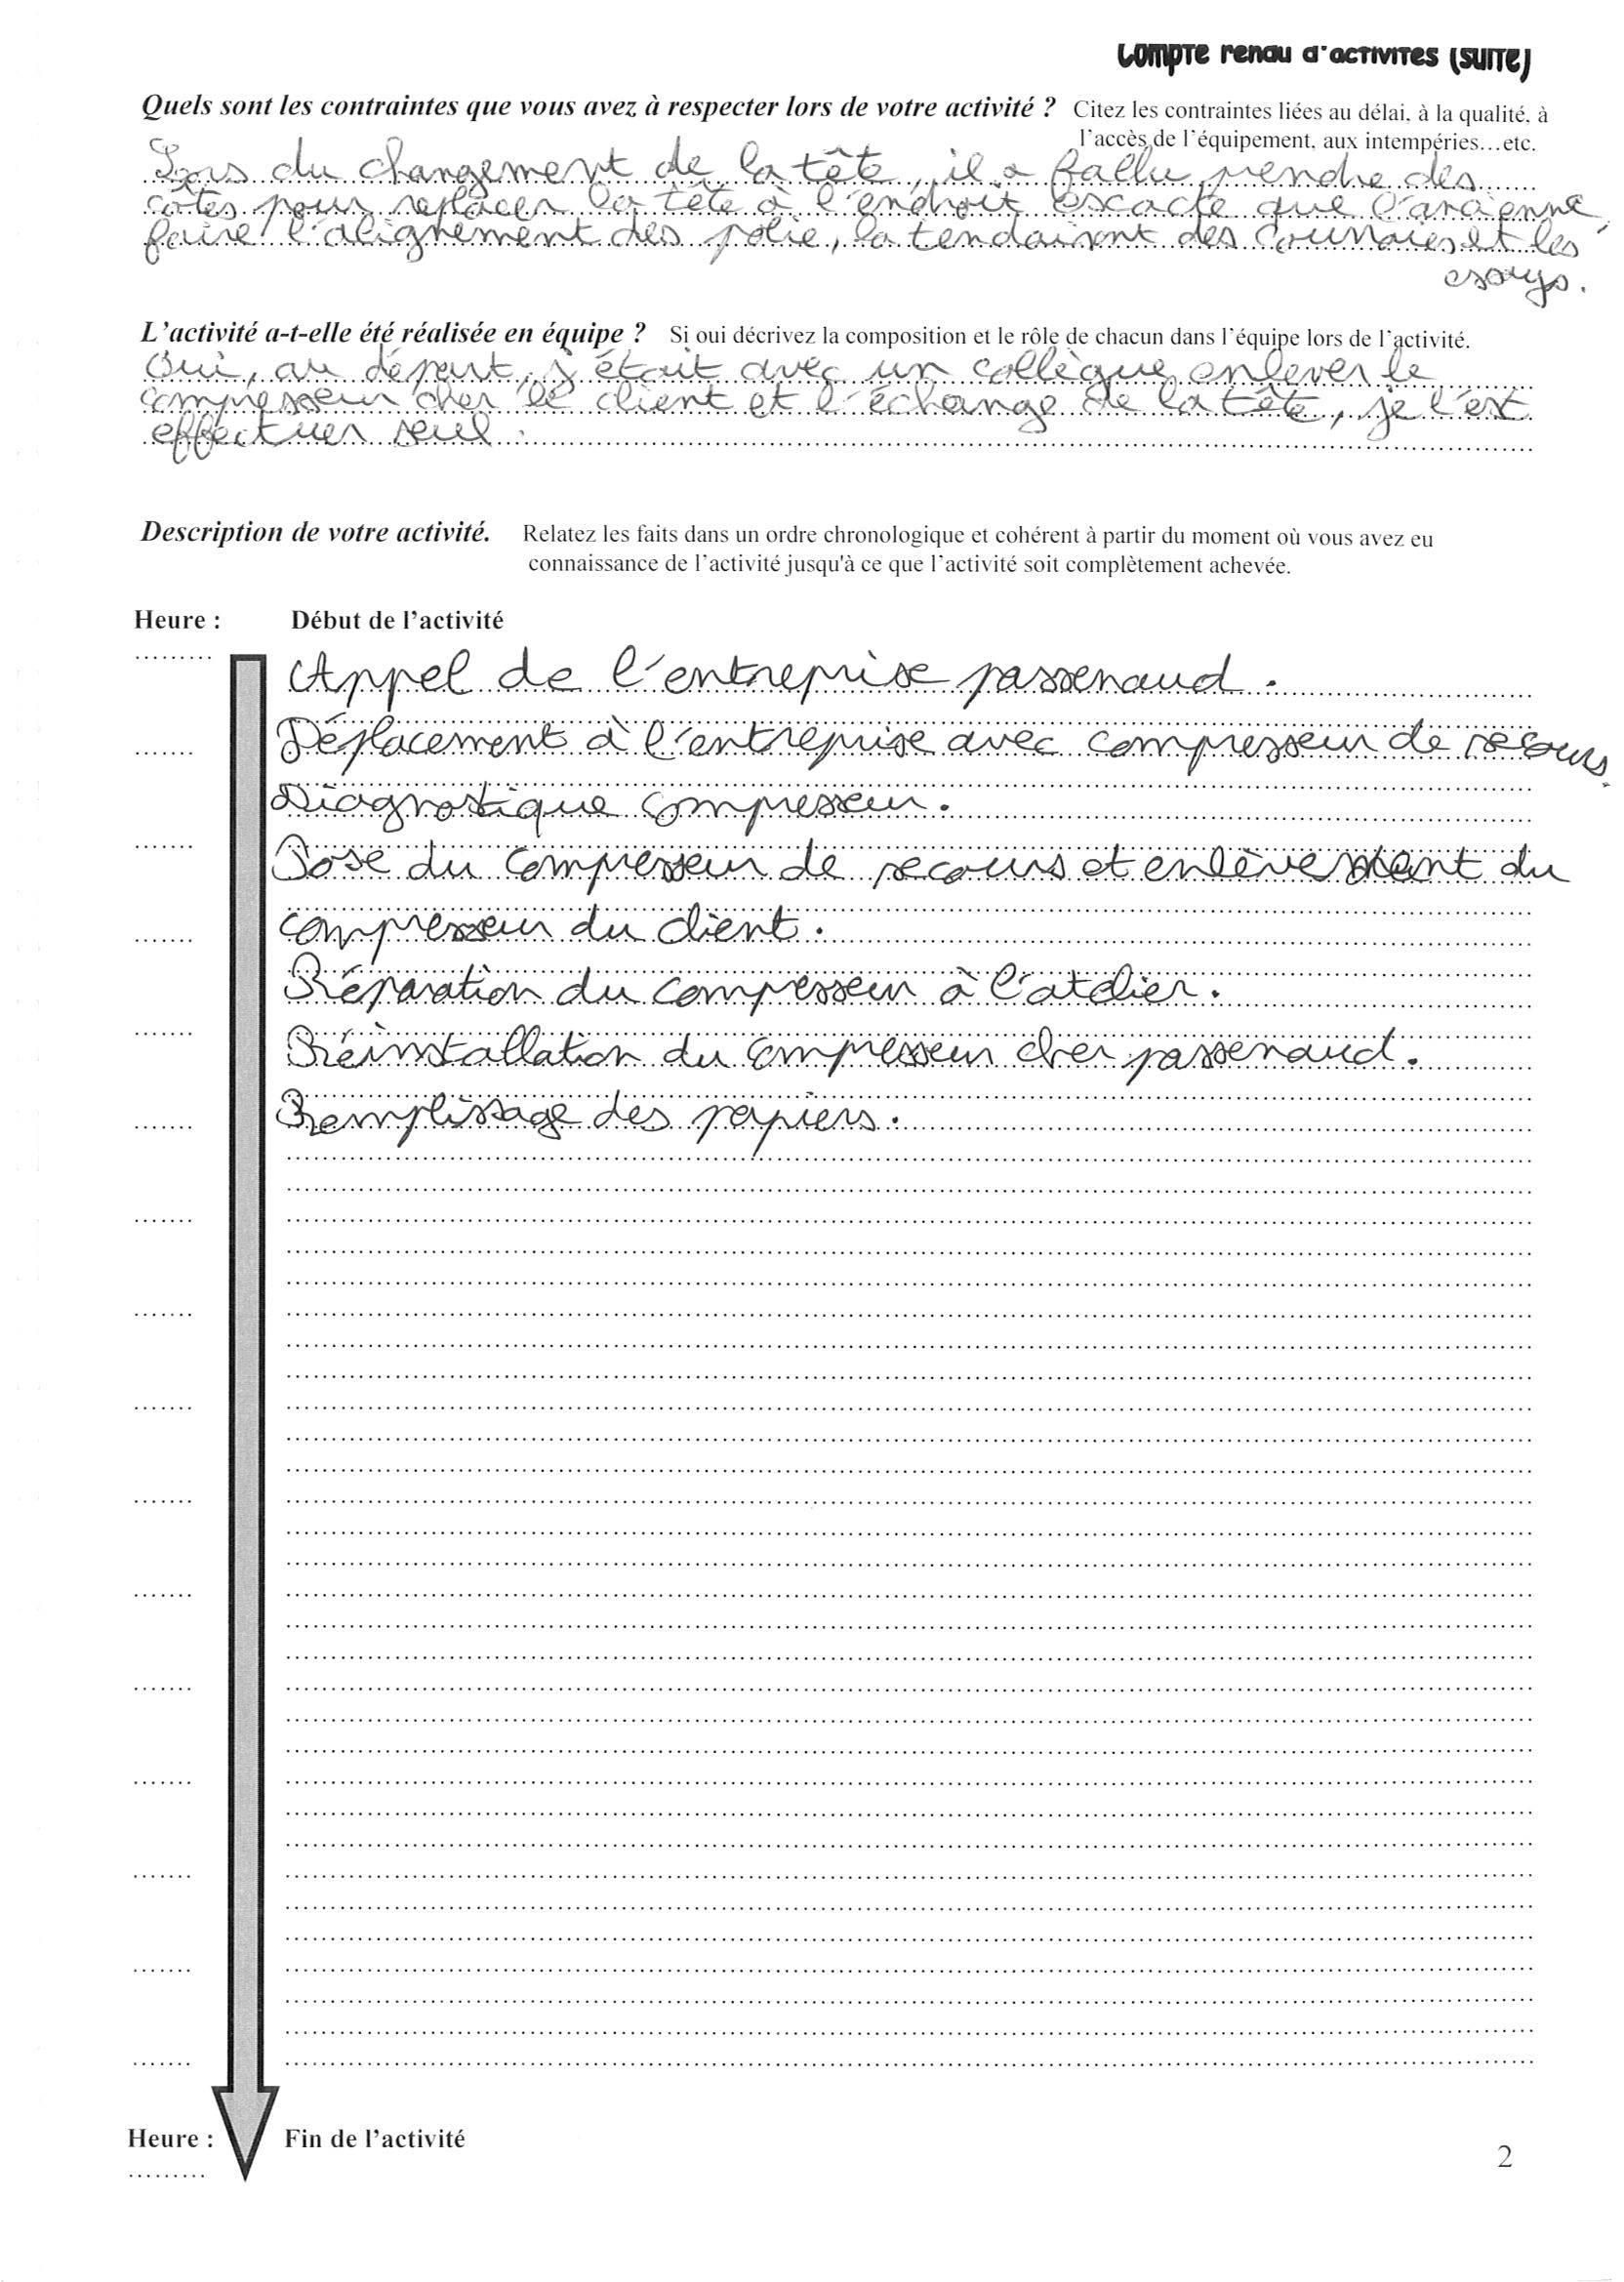 Compte rendu d'activités (suite)
Quels sont les contraintes que vous avez à respecter lors de votre activité ? Citez les contraintes liées au délai, à la qualité, à
l'accès de l'équipement, aux intempéries…etc.
Lors du changement de la tête, il a fallu prendre des
côtes pour replacer la tête à l'endroit escacte que l'ancienne,
faire l'alignement des polie, la tendaisont des courroies et les
essays.
L'activité a-t-elle été réalisée en équipe ? Si oui décrivez la composition et le rôle de chacun dans l'équipe lors de l'activité.
Oui, au départ, j'était avec un collègue enlever le
compresseur cher le client et l'échange de la tête, je l'est
effectuer seul.
Description de votre activité. Relatez les faits dans un ordre chronologique et cohérent à partir du moment où vous avez eu
connaissance de l'activité jusqu'à ce que l'activité soit complètement achevée.
Heure : Début de l'activité
Appel de l'entreprise passenaud.
Déplacement à l'entreprise avec compresseur de secours.
Diagnostique compresseur.
Pose du compresseur de secours et enlèvement du
compresseur du client.
Réparation du compresseur à l'atelier.
Réinstallation du compresseur cher passenaud.
Remplissage des papiers.
Heure : Fin de l'activité
2